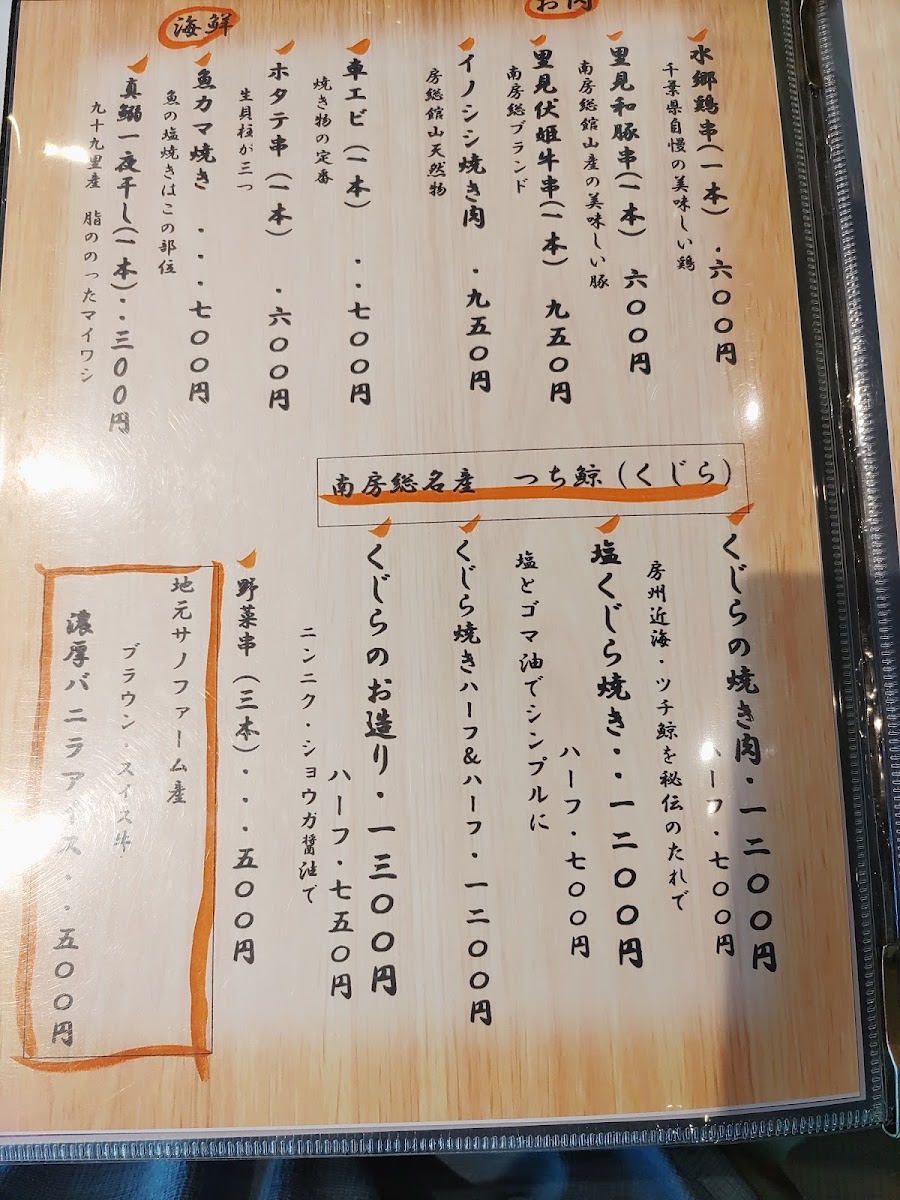 お肉
水郷鶏串(一本)・六〇〇円
千葉県自慢の美味しい鶏
里見和豚串(一本) 六〇〇円
南房総館山産の美味しい豚
里見伏姫牛串(一本) 九五〇円
南房総ブランド
イノシシ焼き肉 ・九五〇円
房総館山天然物
海鮮
車エビ(一本) ・・七〇〇円
焼き物の定番
ホタテ串(一本) ・六〇〇円
生貝柱が三つ
魚カマ焼き ・・・七〇〇円
魚の塩焼きはこの部位
真鰯一夜干し(一本)・・三〇〇円
九十九里産 脂ののったマイワシ
南房総名産 つち鯨(くじら)
くじらの焼き肉・一二〇〇円
ハーフ・七〇〇円
房州近海・ツチ鯨を秘伝のたれで
塩くじら焼き・・一二〇〇円
ハーフ・七〇〇円
塩とゴマ油でシンプルに
くじら焼きハーフ&ハーフ・一二〇〇円
くじらのお造り・一三〇〇円
ハーフ・七五〇円
ニンニク・ショウガ醤油で
野菜串(三本)・・・五〇〇円
地元サノファーム産
ブラウン・スイス牛
濃厚バニラアイス・・五〇〇円